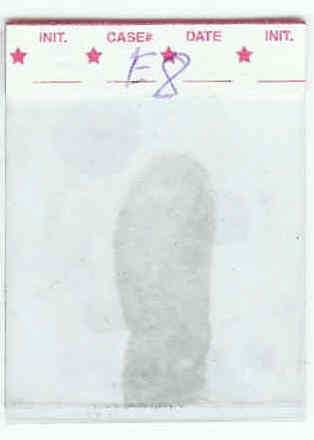 INIT. CASE# DATE INIT.
E8